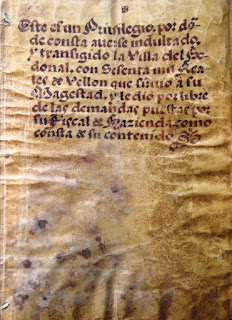 Este es un Privilegio, por dõ-
de consta averse indultado,
y transigido la Villa del Pe-
donal, con Sesenta mil Rea-
les de Vellon que sirvio a su
Magestad, y le dió por libre
de las demandas puestas por
su Fiscal de Hazienda, como
consta de su contenido